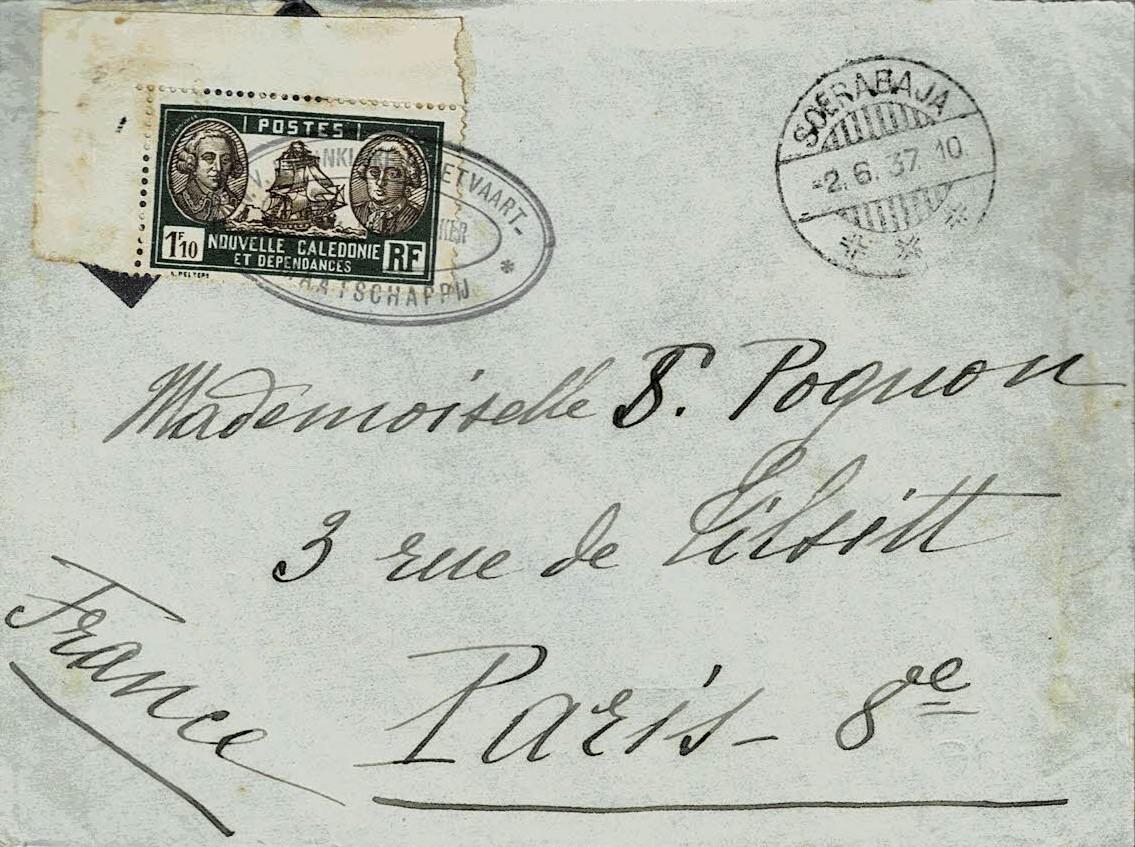 POSTES
1F10
NOUVELLE CALEDONIE
ET DEPENDANCES
RF
ETVAART-
KER
SCHAPPIJ
SOERABAJA
-2.6.37.10
Mademoiselle S. Pognon
3 rue de Tilsitt
Paris - 8e
France